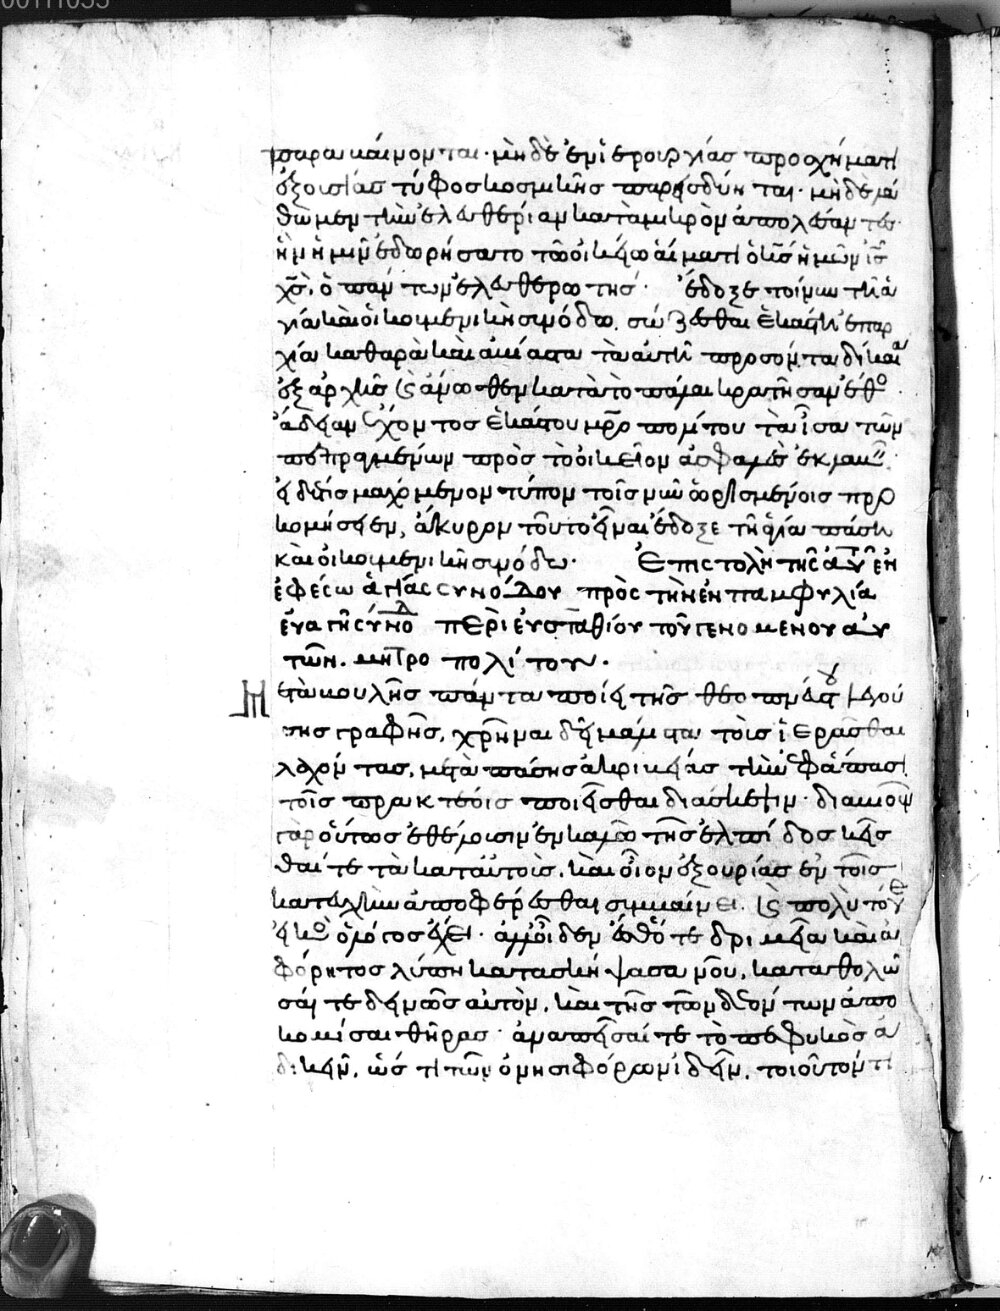 00111055
παραβαίνονται· μηδὲ ἐν ἱερουργίας προσχήματι
ἐξουσίας τύφος κοσμικῆς παρεισδύηται· μηδὲ λά
θωμεν τὴν ἐλευθερίαν κατὰ μικρὸν ἀπολέσαντες·
ἣν ἡμῖν ἐδωρήσατο τῶ οἰκείω αἵματι ὁ κς ἡμῶν ις
χς, ὁ πάντων ἐλευθερωτής· ἔδοξε τοίνυν τῆ ἁ
γία καὶ οἰκουμενικῆ συνόδω, σώζεσθαι ἑκάστη ἐπαρ
χία καθαρὰ καὶ ἀβίαστα τὰ αὐτῆ προσόντα δίκαια
ἐξ ἀρχῆς καὶ ἄνωθεν κατὰ τὸ πάλαι κρατῆσαν ἔθος·
ἄδειαν ἔχοντος ἑκάστου μητροπολίτου τὰ ἴσα τῶν
πεπραγμένων πρὸς τὸ οἰκεῖον ἀσφαλὲς ἐκλαβεῖν·
εἰ δέ τις μαχόμενον τύπον τοῖς νῦν ὡρισμένοις προ
κομίσειεν, ἄκυρον τοῦτο εἶναι ἔδοξε τῆ ἁγία πάση
καὶ οἰκουμενικῆ συνόδω· Ἐπιστολὴ τῆς αὐτῆς ἐν
ἐφέσω ἁγίας συνόδου πρὸς τὴν ἐν παμφυλία
εὐαγῆ σύνοδ περὶ εὐσταθίου τοῦ γενομένου αὐ
τῶν μητροπολίτου·
Μετὰ βουλῆς πάντα ποίει τῆς θεοπνεύστου λεγού
σης γραφῆς, χρῆναι δεῖ μάλιστα τοῖς ἱερᾶσθαι
λαχόντας, μετὰ πάσης ἀκριβείας τὴν ἐφ' ἅπασι
τοῖς πρακτέοις ποιεῖσθαι διάσκεψιν· διαβιοῦν
γὰρ οὕτως ἐθέλουσιν ἐν καλῶ τῆς ἐλπίδος κεῖσ
θαί τε τὰ κατ' αὐτοὺς, καὶ οἷον ἐξ οὐρίας ἐν τοῖς
κατ' εὐχὴν ἀποφέρεσθαι συμβαίνει· καὶ πολὺ τό γε
εἰκὸς ὁ λόγος ἔχει· ἀλλ' οἶδεν ἔσθ' ὅτε δριμεῖα καὶ ἀ
φόρητος λύπη κατασκήψασα νοῦ, καταθολῶ
σαί τε δεινῶς αὐτὸν, καὶ τῆς τῶν δεόντων ἀπο
κομίσαι θήρας· ἀναπεῖσαί τε τὸ πεφυκὸς ἀ
δικεῖν, ὥς τι τῶν ὀνησιφόρων ἰδεῖν, τοιοῦτόν τι